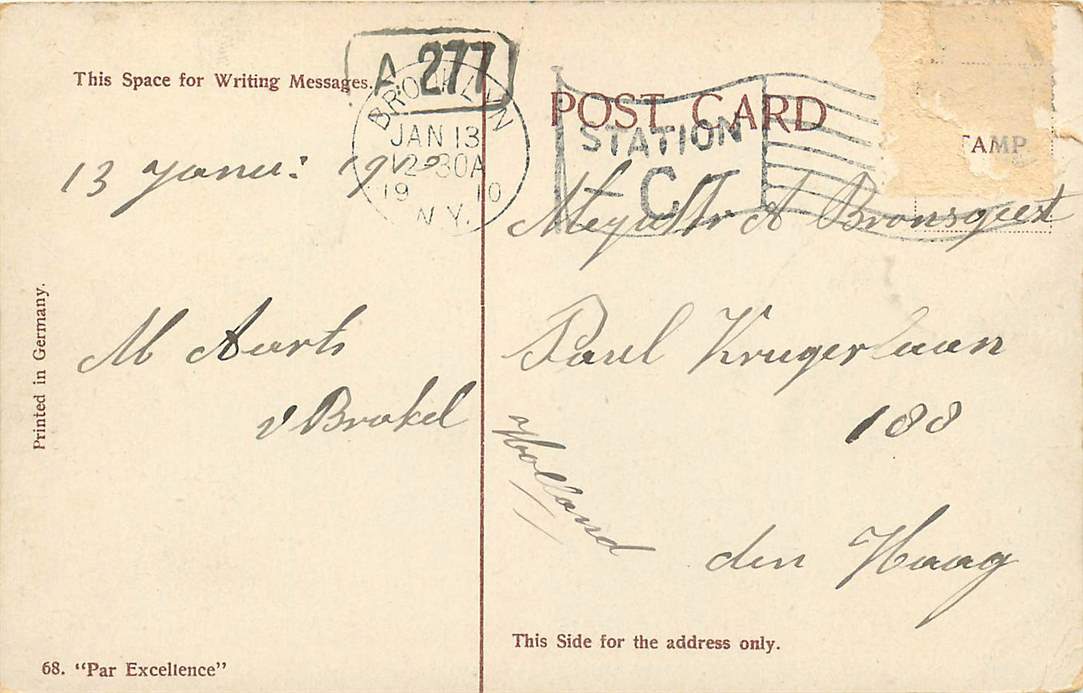 A 277
This Space for Writing Messages.
BROOKLYN
JAN 13
2-30A
19 10
N.Y.
POST CARD
STATION
C
TAMP
13 Janu: 1910
A Bronsgeest
M Aarts
v Brakel
Paul Krugerlaan
188
Holland
den Haag
Printed in Germany.
This Side for the address only.
68. "Par Excellence"